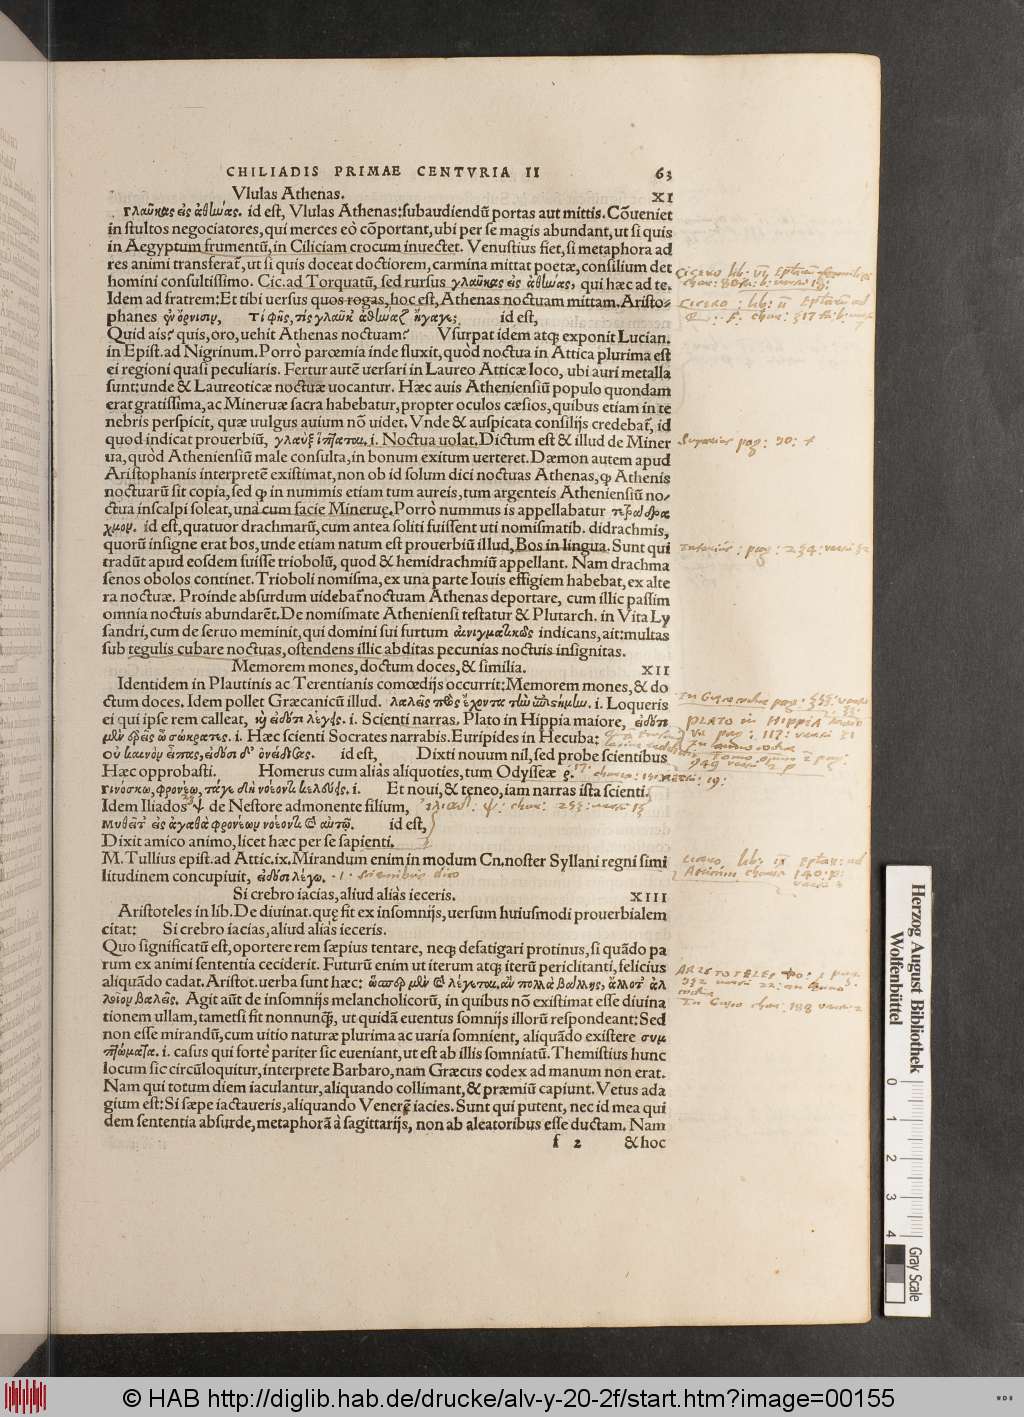 CHILIADIS PRIMAE CENTVRIA II 63
Vlulas Athenas. XI
γλαῦκας εἰς ἀθήνας. id est, Vlulas Athenas: subaudiendū portas aut mittis. Cōueniet
in stultos negociatores, qui merces eò cōportant, ubi per se magis abundant, ut si quis
in Aegyptum frumentū, in Ciliciam crocum inuectet. Venustius fiet, si metaphora ad
res animi transferat̄, ut si quis doceat doctiorem, carmina mittat poetæ, consilium det
homini consultissimo. Cic. ad Torquatū, sed rursus γλαῦκας εἰς ἀθήνας, qui hæc ad te.
Idem ad fratrem: Et tibi uersus quos rogas, hoc est, Athenas noctuam mittam. Aristo-
phanes ἐν ὄρνισιν, τί φῂς, τίς γλαῦκ' ἀθήναζ' ἤγαγε; id est,
Quid ais? quis, oro, uehit Athenas noctuam? Vsurpat idem atq; exponit Lucian.
in Epist. ad Nigrinum. Porrò parœmia inde fluxit, quòd noctua in Attica plurima est
ei regioni quasi peculiaris. Fertur autē uersari in Laureo Atticæ loco, ubi auri metalla
sunt: unde & Laureoticæ noctuæ uocantur. Hæc auis Atheniensiū populo quondam
erat gratissima, ac Mineruæ sacra habebatur, propter oculos cæsios, quibus etiam in te
nebris perspicit, quæ uulgus auium nō uidet. Vnde & auspicata consilijs credebat̄, id
quod indicat prouerbiū, γλαὺξ ἵπταται. i. Noctua uolat. Dictum est & illud de Miner
ua, quòd Atheniensiū male consulta, in bonum exitum uerteret. Dæmon autem apud
Aristophanis interpretē existimat, non ob id solum dici noctuas Athenas, ꝙ Athenis
noctuarū sit copia, sed ꝙ in nummis etiam tum aureis, tum argenteis Atheniensiū no-
ctua inscalpi soleat, una cum facie Mineruę. Porrò nummus is appellabatur τετράδρα
χμον. id est, quatuor drachmarū, cum antea soliti fuissent uti nomismatib. didrachmis,
quorū insigne erat bos, unde etiam natum est prouerbiū illud, Bos in lingua. Sunt qui
tradūt apud eosdem fuisse triobolū, quod & hemidrachmiū appellant. Nam drachma
senos obolos continet. Trioboli nomisma, ex una parte Iouis effigiem habebat, ex alte
ra noctuæ. Proinde absurdum uidebat̄ noctuam Athenas deportare, cum illic passim
omnia noctuis abundarēt. De nomismate Atheniensi testatur & Plutarch. in Vita Ly
sandri, cum de seruo meminit, qui domini sui furtum αἰνιγματικῶς indicans, ait: multas
sub tegulis cubare noctuas, ostendens illic abditas pecunias noctuis insignitas.
Memorem mones, doctum doces, & similia. XII
Identidem in Plautinis ac Terentianis comœdijs occurrit: Memorem mones, & do
ctum doces. Idem pollet Græcanicū illud. λαλεῖς πρὸς ἔχοντα τὴν ἐπιστήμην. i. Loqueris
ei qui ipse rem calleat, καὶ εἰδότι λέγεις. i. Scienti narras. Plato in Hippia maiore, εἰδότι
μὲν ἐρεῖς ὦ σώκρατες. i. Hæc scienti Socrates narrabis. Euripides in Hecuba:
οὐ καινὸν εἶπας, εἰδόσι δ' ὀνείδισας. id est, Dixti nouum nil, sed probe scientibus
Hæc opprobasti. Homerus cum aliàs aliquoties, tum Odysseæ ρ.
γινώσκω, φρονέω, τάγε δὴ νοέοντι κελεύεις. i. Et noui, & teneo, iam narras ista scienti.
Idem Iliados ψ de Nestore admonente filium,
μυθεῖτ' εἰς ἀγαθὰ φρονέων νοέοντι καὶ αὐτῷ. id est,
Dixit amico animo, licet hæc per se sapienti.
M. Tullius epist. ad Attic. ix. Mirandum enim in modum Cn. noster Syllani regni simi
litudinem concupiuit, εἰδόσι λέγω. · i · scientibus dico
Si crebro iacias, aliud aliàs ieceris. XIII
Aristoteles in lib. De diuinat. quę fit ex insomnijs, uersum huiusmodi prouerbialem
citat: Si crebro iacias, aliud aliàs ieceris.
Quo significatū est, oportere rem sæpius tentare, neq; defatigari protinus, si quādo pa
rum ex animi sententia ceciderit. Futurū enim ut iterum atq; iterū periclitanti, felicius
aliquādo cadat. Aristot. uerba sunt hæc: ὥσπερ μὲν καὶ λέγεται, ἂν πολλὰ βάλλῃς, ἄλλοτ' ἀλ
λοῖον βαλεῖς. Agit aūt de insomnijs melancholicorū, in quibus nō existimat esse diuina
tionem ullam, tametsi fit nonnunq̄, ut quidā euentus somnijs illorū respondeant: Sed
non esse mirandū, cum uitio naturæ plurima ac uaria somnient, aliquādo existere συμ
πτώματα. i. casus qui fortè pariter sic eueniant, ut est ab illis somniatū. Themistius hunc
locum sic circūloquitur, interprete Barbaro, nam Græcus codex ad manum non erat.
Nam qui totum diem iaculantur, aliquando collimant, & præmiū capiunt. Vetus ada
gium est: Si sæpe iactaueris, aliquando Venerē iacies. Sunt qui putent, nec id mea qui
dem sententia absurde, metaphorā à sagittarijs, non ab aleatoribus esse ductam. Nam
f 2 & hoc
Superius pag: 90:
Inferius: pag: 234:
PLATO in HIPPIA
Herzog August Bibliothek
Wolfenbüttel
0 1 2 3 4
Gray Scale
© HAB http://diglib.hab.de/drucke/alv-y-20-2f/start.htm?image=00155